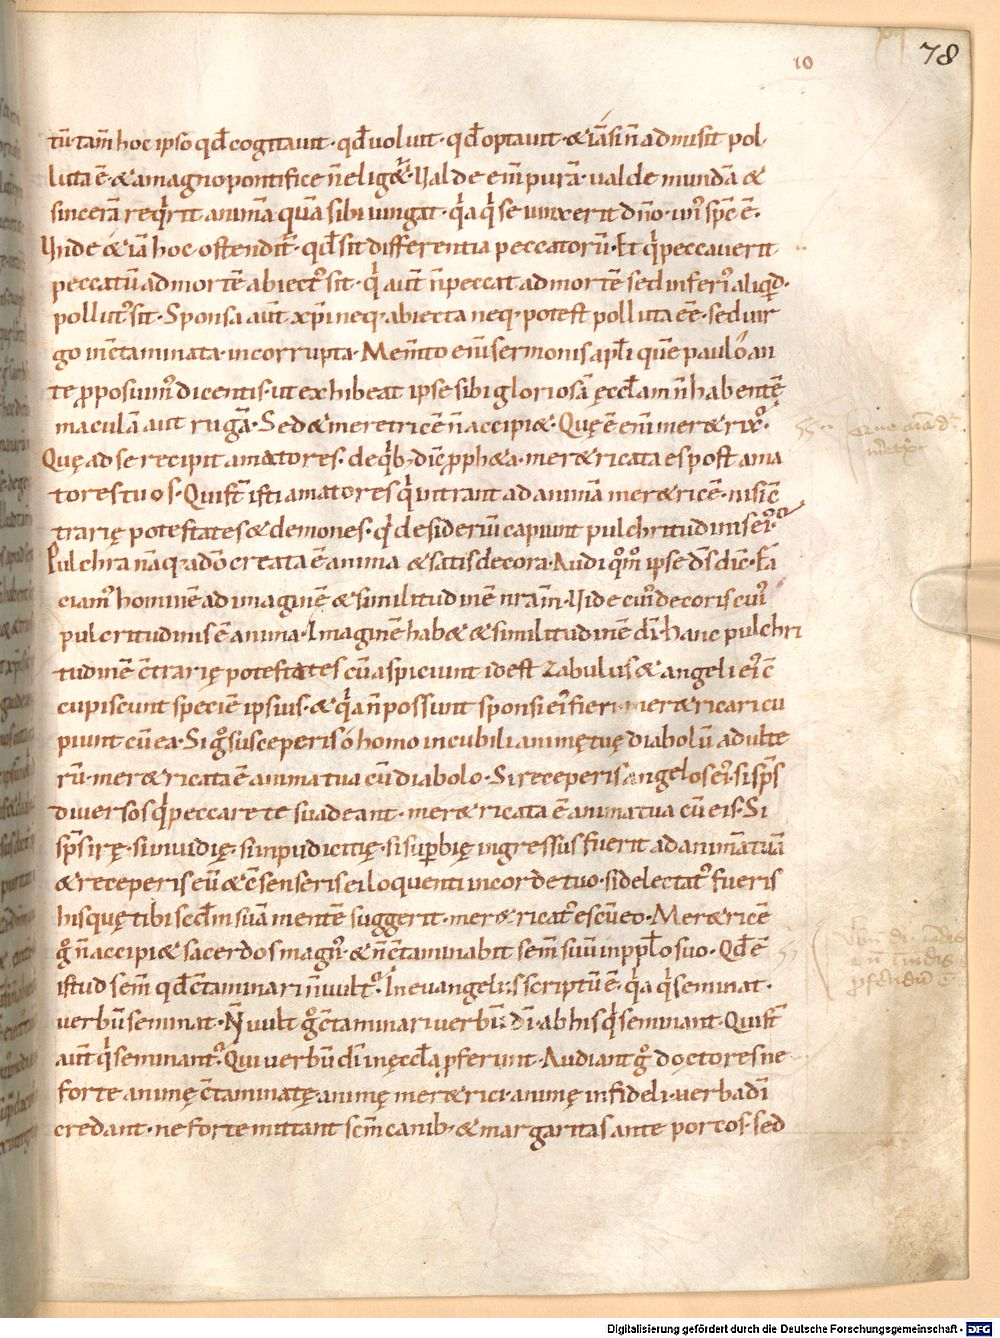 10
78
tū· tam̄ hoc ipso qđ cogitauit· qđ uoluit· qđ optauit· & iā si n̄ admisit pol
luta ē· & a magno pontifice n̄ elig&ur· Valde enī purā· ualde mundā &
sincerā requirit animā quā sibi iungat· quia qui se iunxerit dn̄o· un' sps̄ ē·
Unde & iā hoc ostendit̄· qđ sit differentia peccatorū· Et qui peccauerit
peccatū ad mortē abiect' sit· qui aut̄ n̄ peccat ad mortē sed inferi' aliquid·
pollut' sit· Sponsa aut̄ xp̄i neq· abiecta neq· potest polluta ēē· sed uir
go inc̄taminata· incorrupta· Mem̄to enī sermonis apl̄i quē paulo an
te p̱posuim' dicentis· ut exhibeat ipse sibi gloriosā ęcclam n̄ habentē
maculā aut rugā· Sed & meretricē n̄ accipi&· Quę ē enī mer&rix·
Quę ad se recipit amatores· de quib; dic̄ pph&a· mer&ricata es post ama
tores tuos· Qui sn̄t isti amatores qui intrant ad animā mer&ricē· nisi c̄
trarię potestates & demones· qui desideriū capiunt pulchritudinis ei'
Pulchra nāq· a dō creata ē anima & satis decora· Audi quom̄ ipse ds̄ dic̄· Fa
ciam' hominē ad imaginē & similitudinē nrām· Vide cui' decoris cui'
pulcritudinis ē anima· Imaginē hab& & similitudinē dī· hanc pulchri
tudinē c̄trarię potestates cū aspiciunt idest zabulus & angeli ei' c̄
cupiscunt speciē ipsius· & quia n̄ possunt sponsi ei' fieri· mer&ricari cu
piunt cū ea· Si g° susceperis o homo in cubili animę tuę diabolū adulte
rū· mer&ricata ē anima tua cū diabolo· Si receperis angelos ei'· si sps̄
diuersos qui peccare te suadeant· mer&ricata ē anima tua cū eis· Si
sps̄ irę· si inuidię· si inpudicitię· si supbię ingressus fuerit ad animā tuā
& receperis eū & c̄senseris ei loquenti in corde tuo· si delectat' fueris
hisquę tibi scđm suā mentē suggerit· mer&ricat' es cū eo· Mer&ricē
g° n̄ accipi& sacerdos magn'· & n̄ c̄taminabit sem̄ suū in pplo suo· Qđ ē
istud sem̄ qđ c̄taminari n̄ uult· In euangeliis scriptū ē· quia qui seminat·
uerbū seminat· N̄ uult g° c̄taminari uerbū dī· ab his qui seminant· Qui sn̄t
aut̄ qui seminant· Qui uerbū dī in ęccla pferunt· Audiant g° doctores ne
forte animę c̄taminatę· animę mer&rici· animę infideli· uerba dī
credant· ne forte mittant scm̄ canib; & margaritas ante porcos· sed
Digitalisierung gefördert durch die Deutsche Forschungsgemeinschaft - DFG